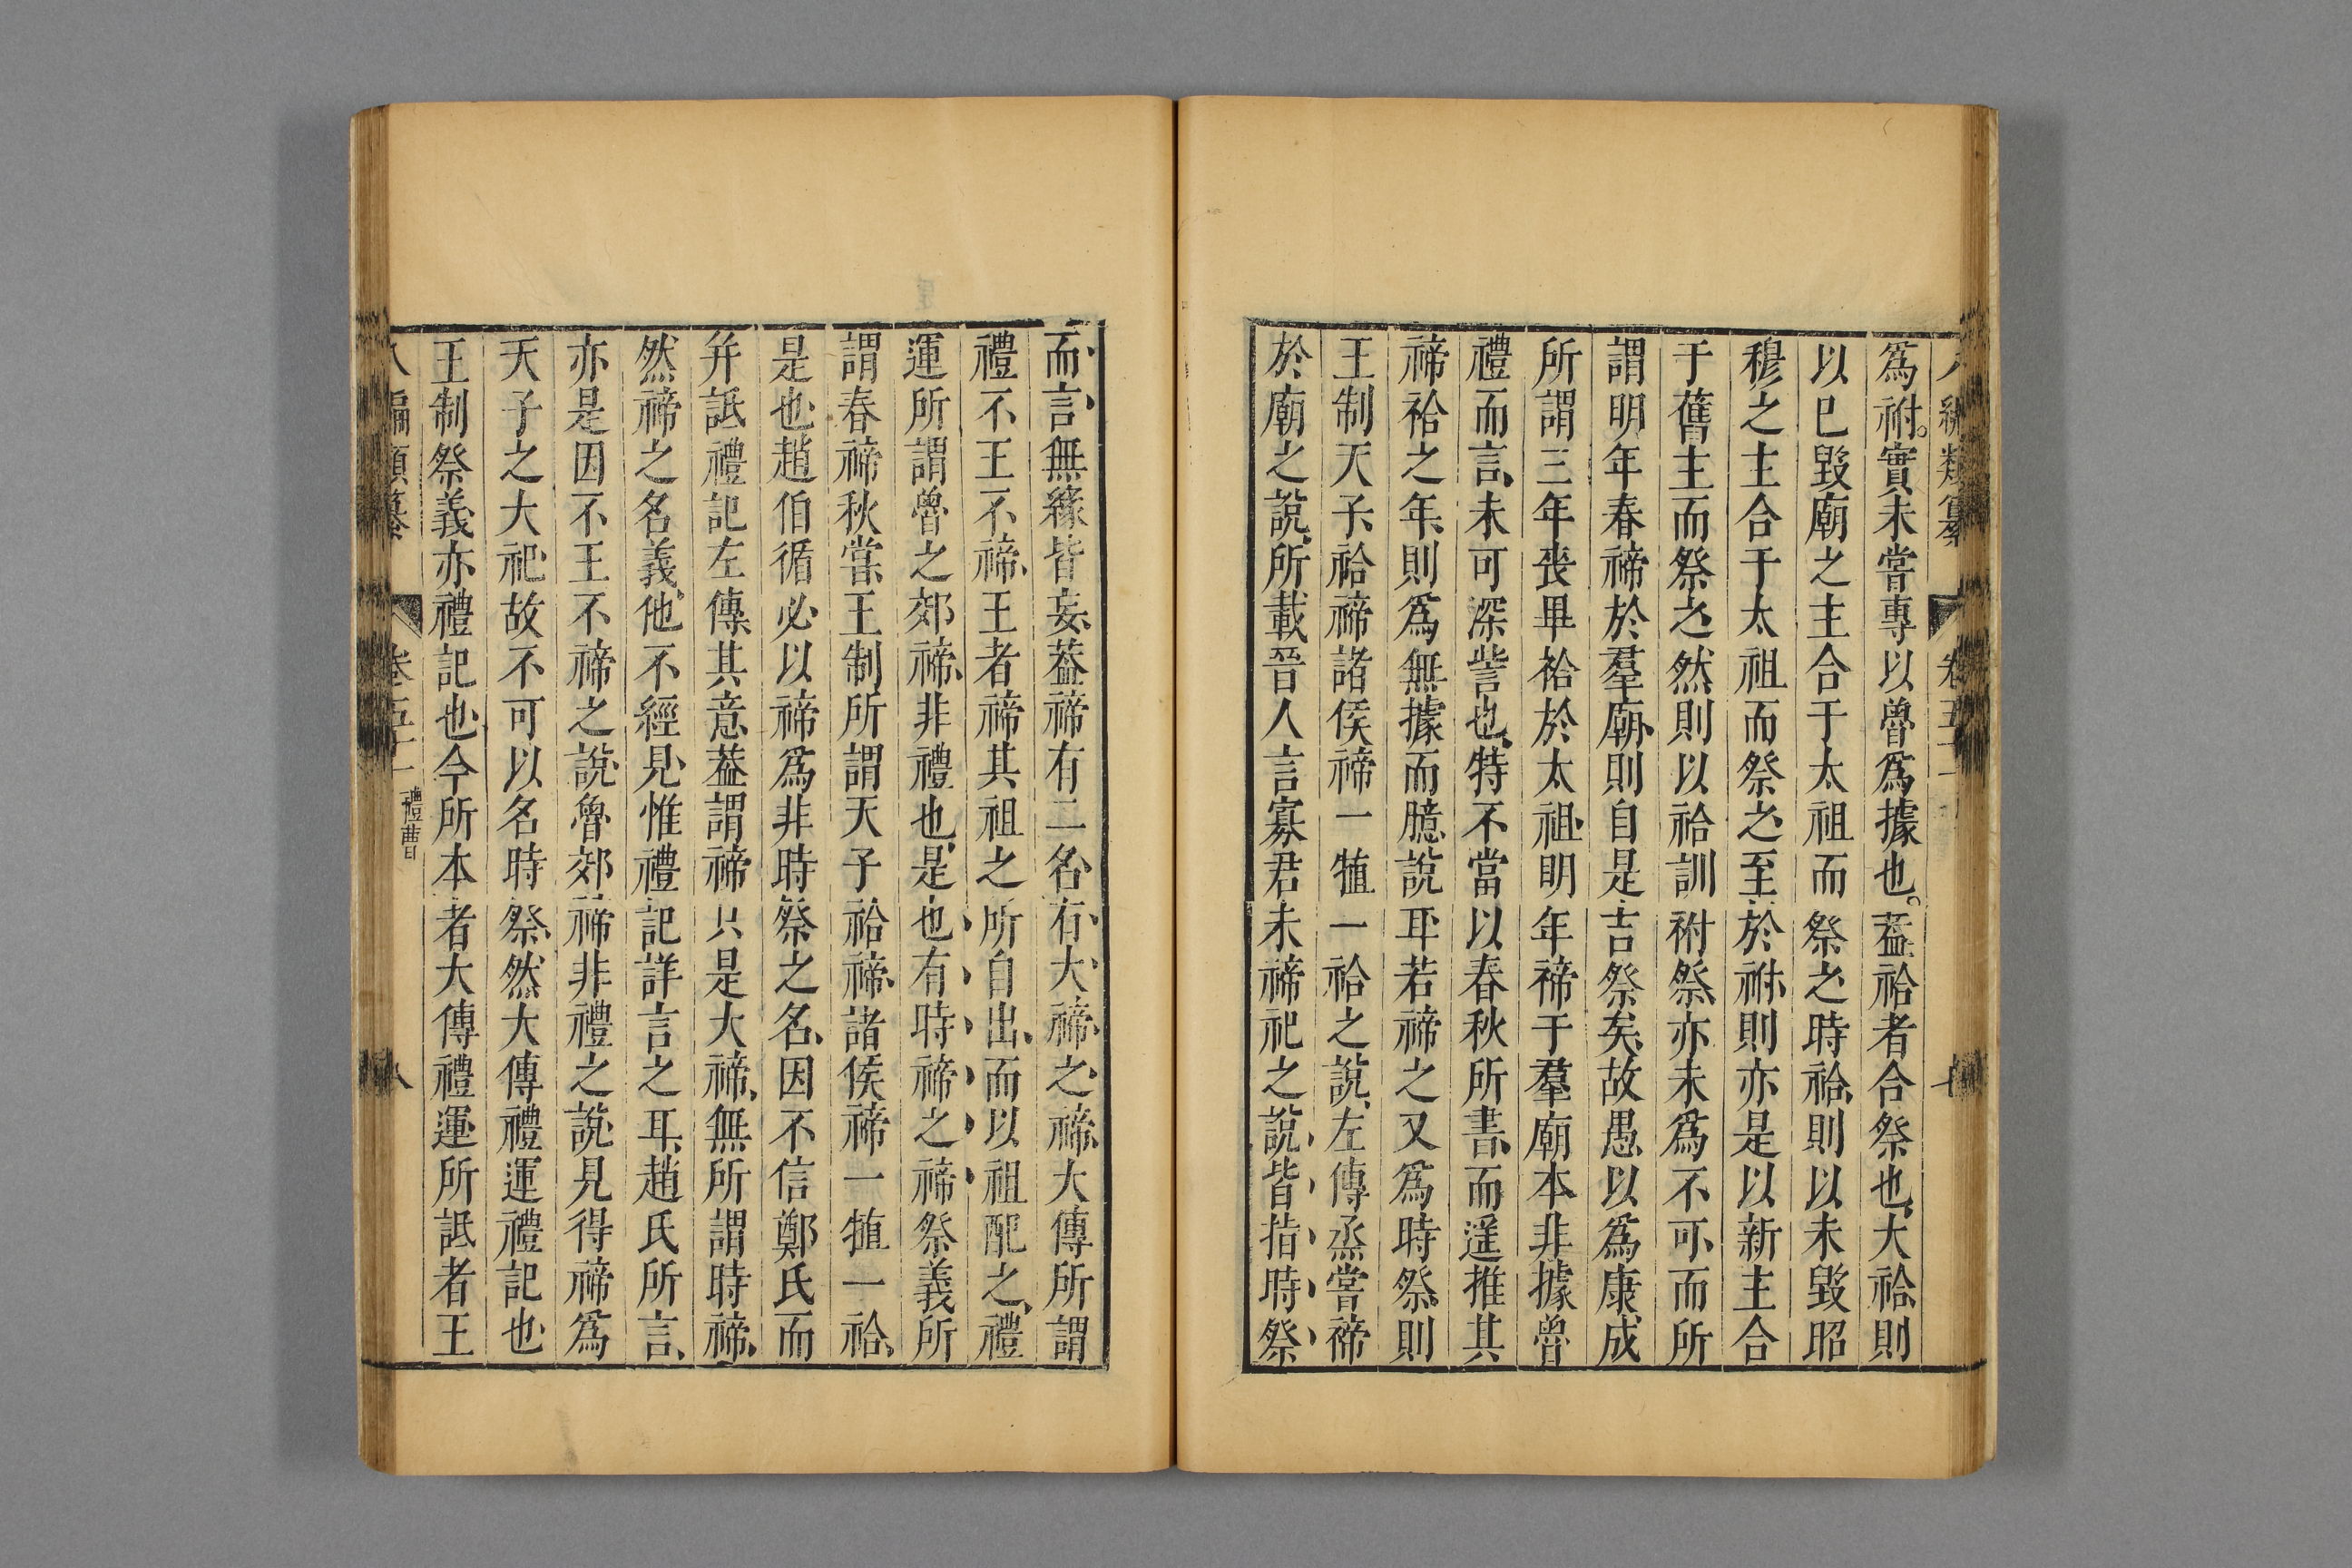 八編類纂 卷五十一
爲祔實未嘗專以魯爲據也蓋祫者合祭也大祫則
以已毀廟之主合于太祖而祭之時祫則以未毀昭
穆之主合于太祖而祭之至於祔則亦是以新主合
于舊主而祭之然則以祫訓祔祭亦未爲不可而所
謂明年春禘於羣廟則自是吉祭矣故愚以爲康成
所謂三年喪畢祫於太祖明年禘于羣廟本非據魯
禮而言未可深訾也特不當以春秋所書而遥推其
禘祫之年則爲無據而臆說耳若禘之又爲時祭則
王制天子祫禘諸侯禘一犆一祫之說左傳烝嘗禘
於廟之說所載晉人言寡君未禘祀之說皆指時祭
而言無緣皆妄蓋禘有二名有大禘之禘大傳所謂
禮不王不禘王者禘其祖之所自出而以祖配之禮
運所謂魯之郊禘非禮也是也有時禘之禘祭義所
謂春禘秋嘗王制所謂天子祫禘諸侯禘一犆一祫
是也趙伯循必以禘爲非時祭之名因不信鄭氏而
并詆禮記左傳其意蓋謂禘只是大禘無所謂時禘
然禘之名義他不經見惟禮記詳言之耳趙氏所言
亦是因不王不禘之說魯郊禘非禮之說見得禘爲
天子之大祀故不可以名時祭然大傳禮運禮記也
王制祭義亦禮記也今所本者大傳禮運所詆者王
八編類纂 卷五十一 禮曹 八